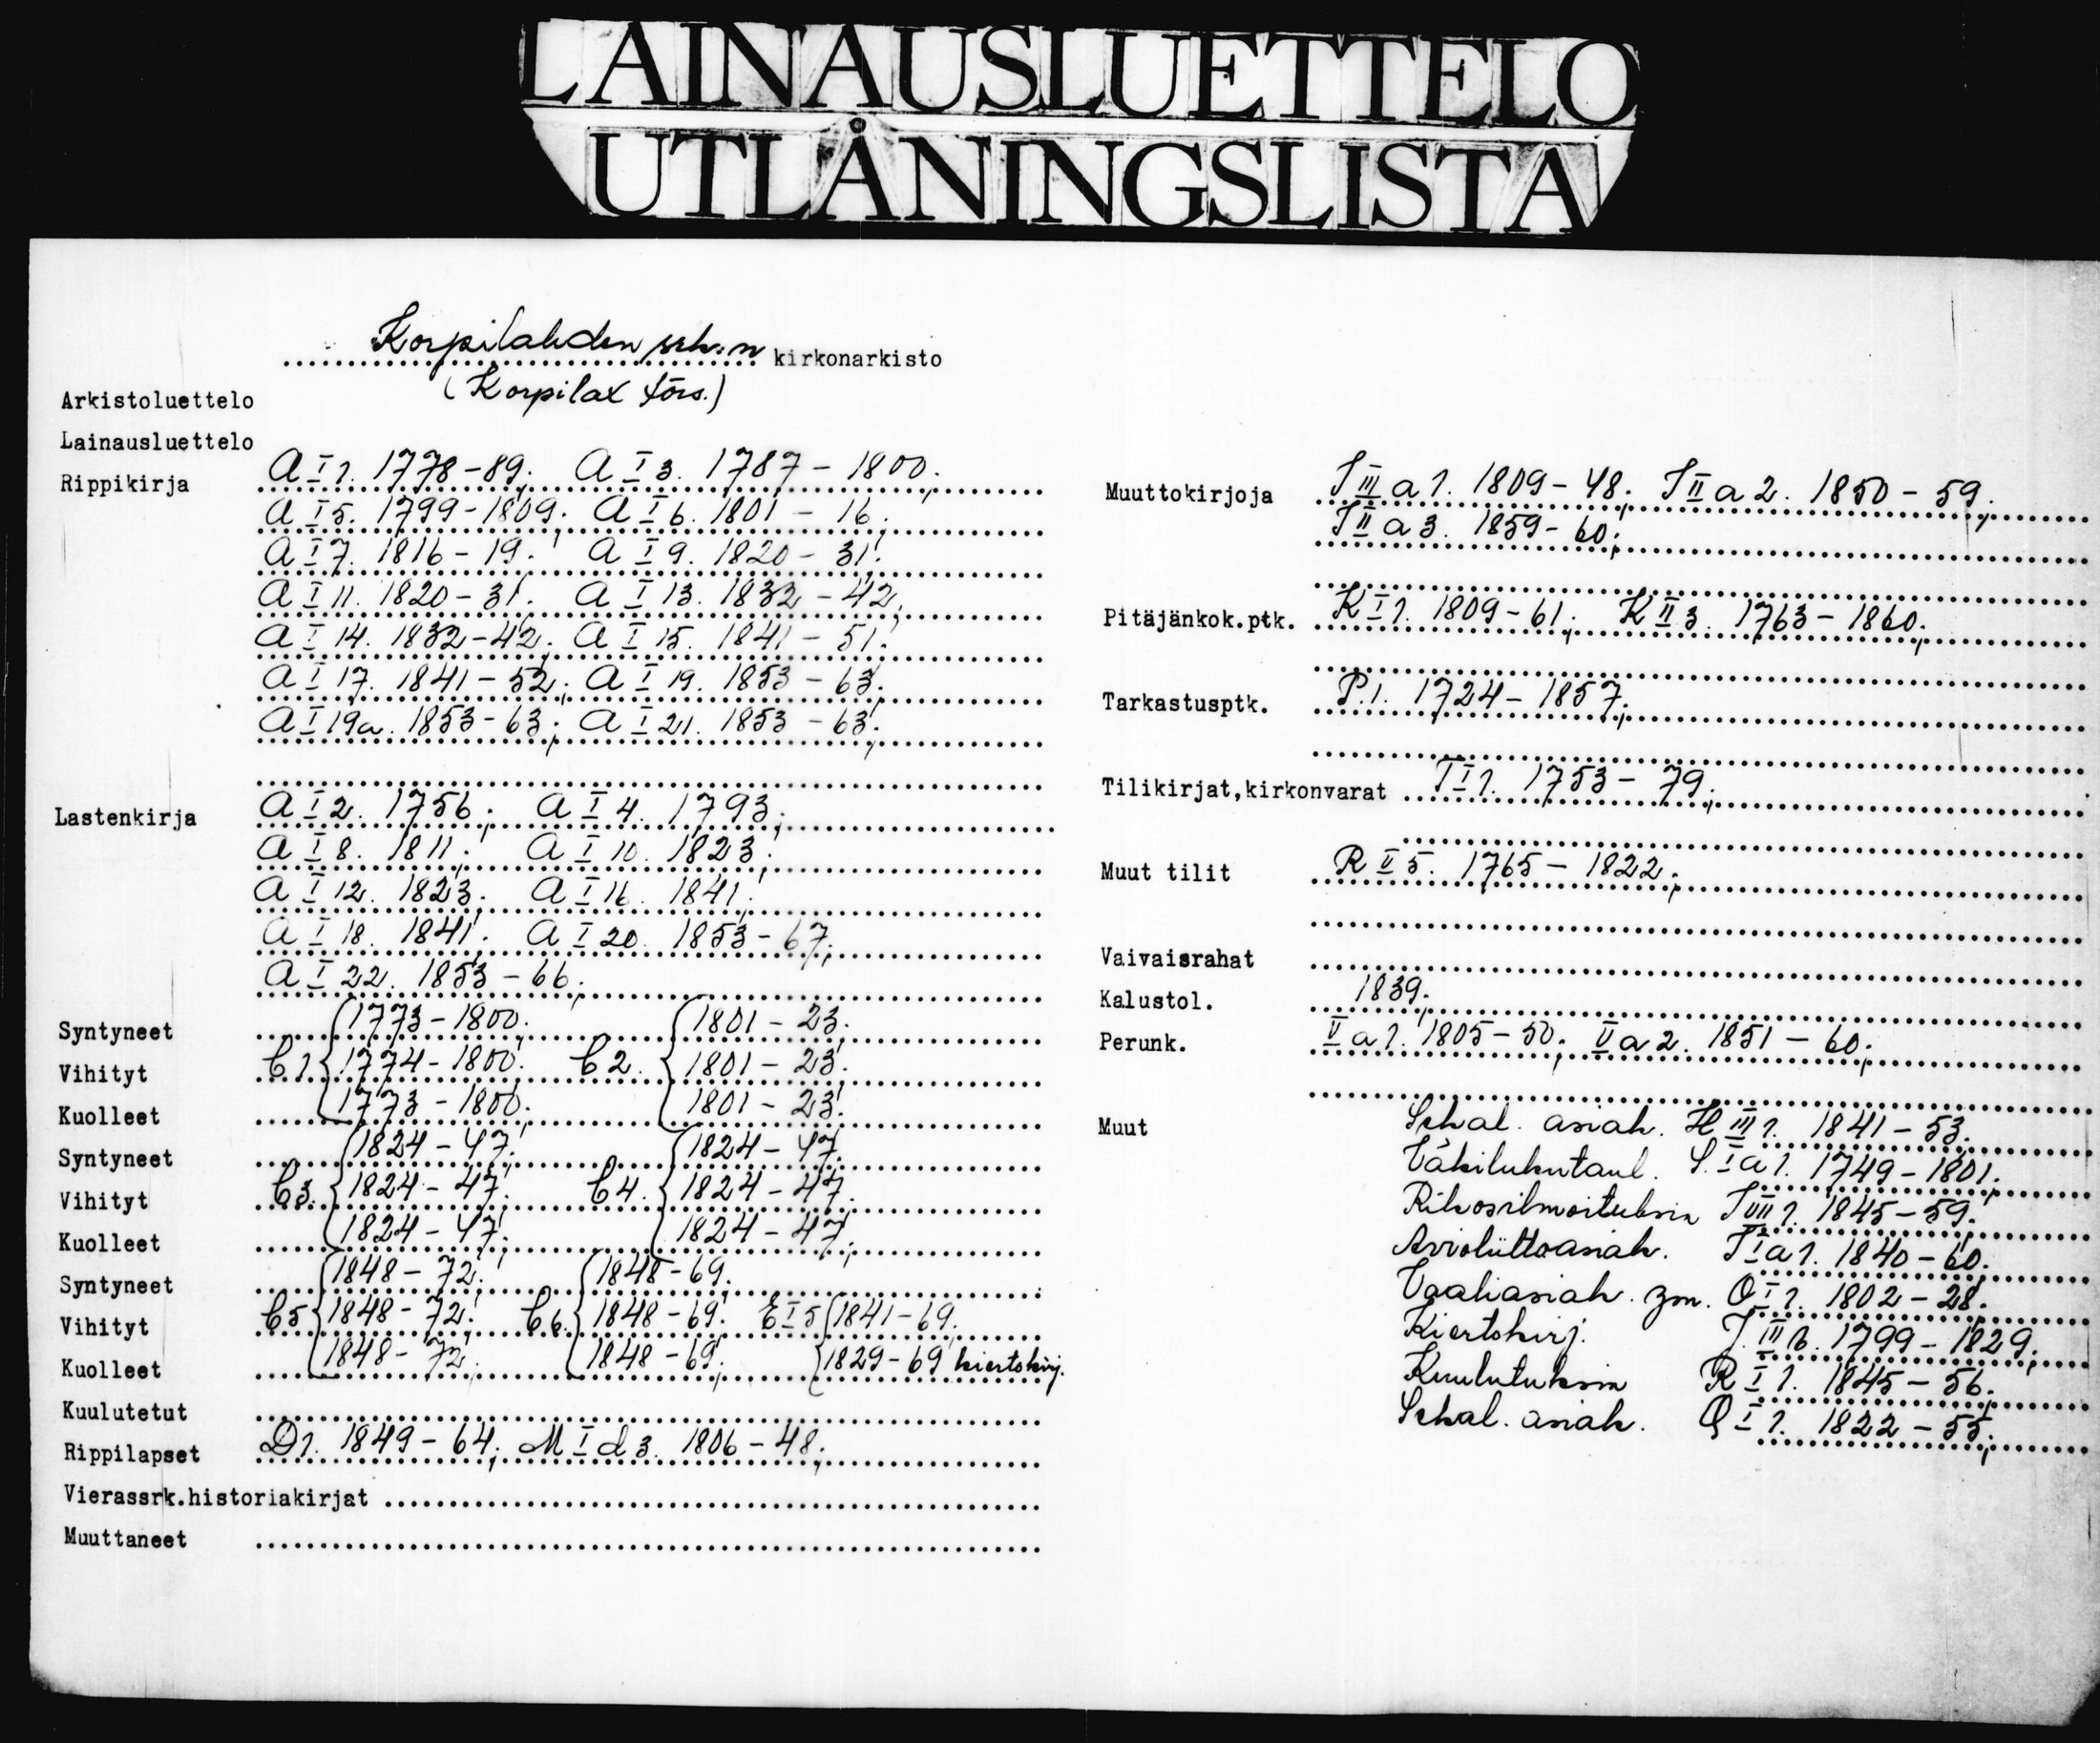 LAINAUSLUETTELO
UTLÅNINGSLISTA
Korpilahden srk:n kirkonarkisto
(Korpilax förs.)
Arkistoluettelo
Lainausluettelo
Rippikirja A I 1. 1778-89; A I 3. 1787-1800;
A I 5. 1799-1809; A I 6. 1801-16;
A I 7. 1816-19; A I 9. 1820-31;
A I 11. 1820-31; A I 13. 1832-42;
A I 14. 1832-42; A I 15. 1841-51;
A I 17. 1841-52; A I 19. 1853-63;
A I 19a. 1853-63; A I 21. 1853-63;
Lastenkirja A I 2. 1756; A I 4. 1793;
A I 8. 1811; A I 10. 1823;
A I 12. 1823; A I 16. 1841;
A I 18. 1841; A I 20. 1853-67;
A I 22. 1853-66;
Syntyneet {1773-1800; {1801-23;
Vihityt C1 {1774-1800; C2. {1801-23;
Kuolleet {1773-1800; {1801-23;
Syntyneet {1824-47; {1824-47;
Vihityt C3. {1824-47; C4. {1824-47;
Kuolleet {1824-47; {1824-47;
Syntyneet {1848-72; {1848-69;
Vihityt C5 {1848-72; C6. {1848-69; E I 5 {1841-69.
Kuolleet {1848-72; {1848-69; {1829-69 kiertokirj.
Kuulutetut
Rippilapset D1. 1849-64; M I d 3. 1806-48;
Vierassrk.historiakirjat
Muuttaneet
Muuttokirjoja J III a 1. 1809-48; J II a 2. 1850-59;
J II a 3. 1859-60;
Pitäjänkok.ptk. K I 1. 1809-61; K II 3. 1763-1860;
Tarkastusptk. P.1. 1724-1857;
Tilikirjat,kirkonvarat T I 1. 1753-79;
Muut tilit R II 5. 1765-1822;
Vaivaisrahat
Kalustol. 1839;
Perunk. II a 1. 1805-50; II a 2. 1851-60;
Muut Sekal. asiak. H III 1. 1841-53;
Väkilukutaul. S. I a 1. 1749-1801;
Rikosilmoituksia J VII 1. 1845-59;
Avioliittoasiak. J I a 1. 1840-60;
Vaaliasiak. ym. O I 1. 1802-28;
Kiertokirj. J. III b. 1799-1829;
Kuulutuksia R I 1. 1845-56;
Sekal. asiak. Q I 1. 1822-55;